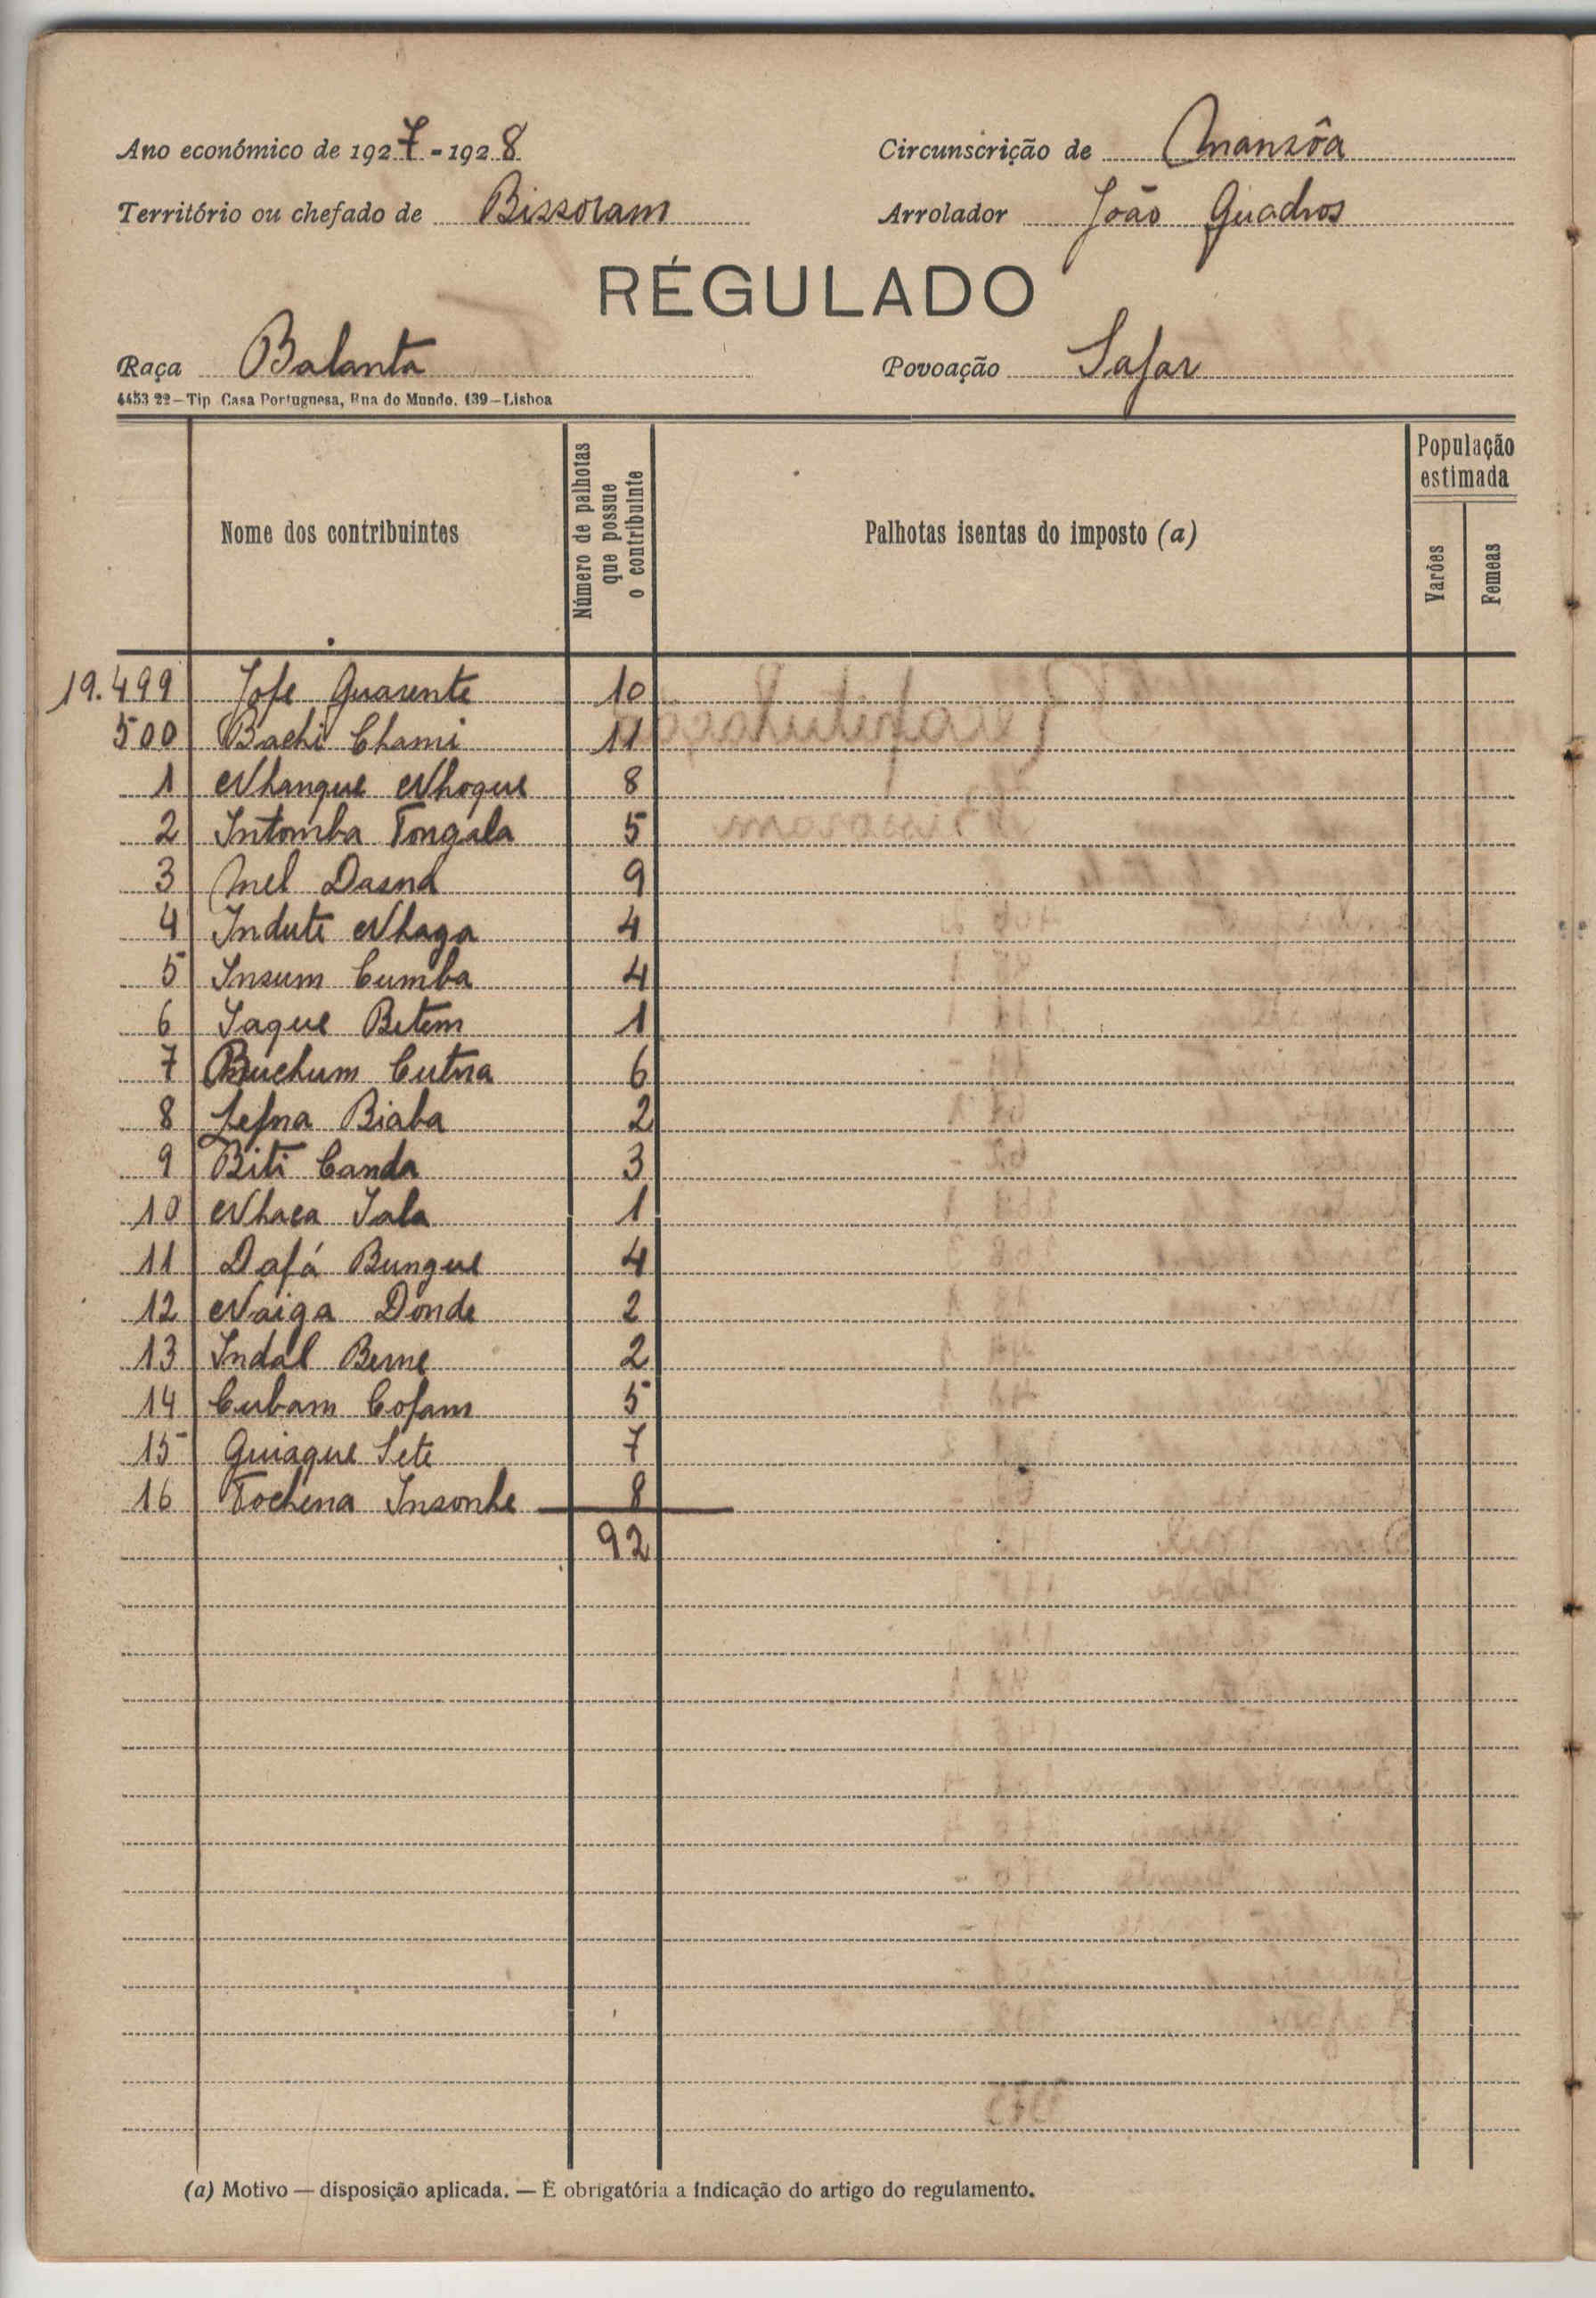 Ano económico de 1927-1928
Circunscrição de Mansôa
Território ou chefado de Bissoram
Arrolador João Quadros
RÉGULADO
Raça Balanta
Povoação Safar
4453 22—Tip Casa Portuguesa, Rua do Mundo, 139—Lisboa
Nome dos contribuintes
Número de palhotas que possue o contribuinte
Palhotas isentas do imposto (a)
População estimada
Varões
Femeas
19.499 Jofe Quarente 10
500 Bachi Chami 11
1 Nhanque Nhoque 8
2 Intomba Tongala 5
3 Mel Dasna 9
4 Indute Nhaga 4
5 Insum Cumba 4
6 Iaque Betem 1
7 Buchum Cutna 6
8 Lefna Biaba 2
9 Biti Canda 3
10 Nhaca Iala 1
11 Dafá Bungue 4
12 Naiga Donde 2
13 Indal Berne 2
14 Cubam Cofam 5
15 Quiaque Sete 7
16 Tochena Insonhe 8
92
(a) Motivo — disposição aplicada. — É obrigatória a indicação do artigo do regulamento.